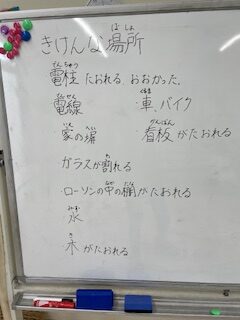 きけんな場所
ばしょ
電柱 たおれる、おおかった。
でんちゅう
電線
でんせん
車、バイク
くるま
家の塀
いえ へい
看板がたおれる
かんばん
ガラスが割れる
わ
ローソンの中の棚がたおれる
なか たな
水
みず
木がたおれる
き